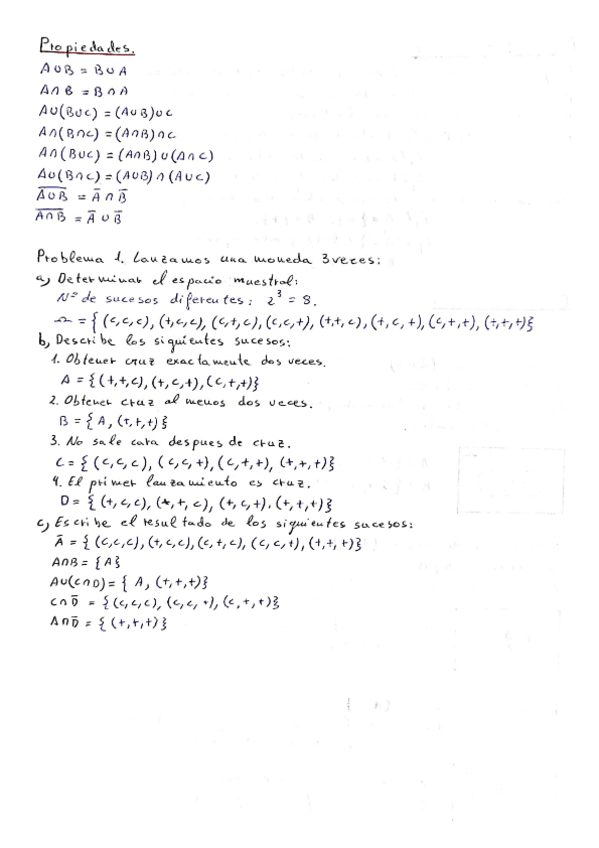 Propiedades.
A∪B = B∪A
A∩B = B∩A
A∪(B∪C) = (A∪B)∪C
A∩(B∩C) = (A∩B)∩C
A∩(B∪C) = (A∩B)∪(A∩C)
A∪(B∩C) = (A∪B)∩(A∪C)
A̅∪̅B̅ = A̅ ∩ B̅
A̅∩̅B̅ = A̅ ∪ B̅
Problema 1. Lanzamos una moneda 3 veces:
a) Determinar el espacio muestral:
Nº de sucesos diferentes: 2³ = 8.
Ω = {(c,c,c), (+,c,c), (c,+,c), (c,c,+), (+,+,c), (+,c,+), (c,+,+), (+,+,+)}
b) Describe los siguientes sucesos:
1. Obtener cruz exactamente dos veces.
A = {(+,+,c), (+,c,+), (c,+,+)}
2. Obtener cruz al menos dos veces.
B = {A, (+,+,+)}
3. No sale cara despues de cruz.
C = {(c,c,c), (c,c,+), (c,+,+), (+,+,+)}
4. El primer lanzamiento es cruz.
D = {(+,c,c), (+,+,c), (+,c,+), (+,+,+)}
c) Escribe el resultado de los siguientes sucesos:
A̅ = {(c,c,c), (+,c,c), (c,+,c), (c,c,+), (+,+,+)}
A∩B = {A}
A∪(C∩D) = {A, (+,+,+)}
C∩D̅ = {(c,c,c), (c,c,+), (c,+,+)}
A∩D̅ = {(+,+,+)}